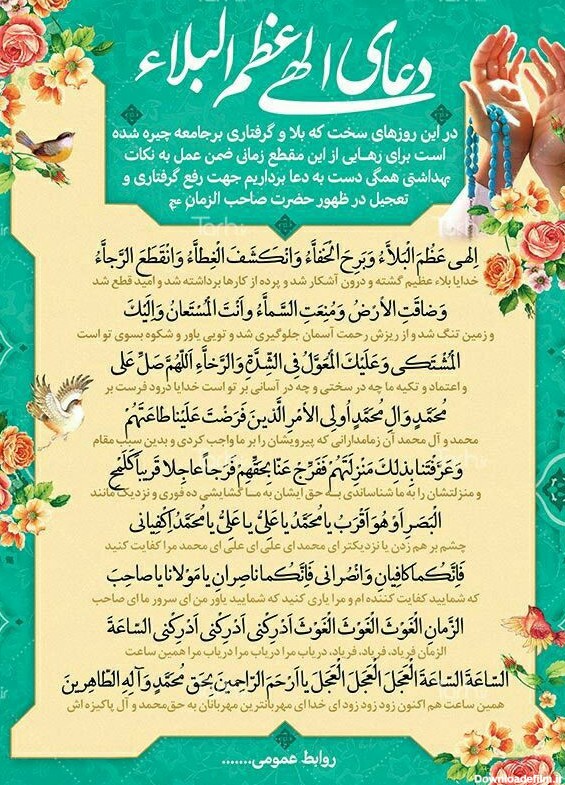 دعای الهی عظم البلاء
در این روزهای سخت که بلا و گرفتاری بر جامعه چیره شده
است برای رهایی از این مقطع زمانی ضمن عمل به نکات
بهداشتی همگی دست به دعا برداریم جهت رفع گرفتاری و
تعجیل در ظهور حضرت صاحب الزمان عج
اِلهی عَظُمَ الْبَلاَّءُ وَبَرِحَ الْخَفاَّءُ وَانْکَشَفَ الْغِطاَّءُ وَانْقَطَعَ الرَّجاَّءُ
خدایا بلاء عظیم گشته و درون آشکار شد و پرده از کارها برداشته شد و امید قطع شد
وَضاقَتِ الاْرْضُ وَمُنِعَتِ السَّماَّءُ واَنْتَ الْمُسْتَعانُ وَاِلَیْکَ
و زمین تنگ شد و از ریزش رحمت آسمان جلوگیری شد و تویی یاور و شکوه بسوی تو است
الْمُشْتَکی وَعَلَیْکَ الْمُعَوَّلُ فِی الشِّدَّةِ وَالرَّخاَّءِ اَللّهُمَّ صَلِّ عَلی
و اعتماد و تکیه ما چه در سختی و چه در آسانی بر تو است خدایا درود فرست بر
مُحَمَّدٍ وَالِ مُحَمَّدٍ اُولِی الاْمْرِ الَّذینَ فَرَضْتَ عَلَیْنا طاعَتَهُمْ
محمد و آل محمد آن زمامدارانی که پیرویشان را بر ما واجب کردی و بدین سبب مقام
وَعَرَّفْتَنا بِذلِکَ مَنْزِلَتَهُمْ فَفَرِّجْ عَنّا بِحَقِّهِمْ فَرَجاً عاجِلا قَریباً کَلَمْحِ
و منزلتشان را به ما شناساندی به حق ایشان به ما گشایشی ده فوری و نزدیک مانند
الْبَصَرِ اَوْ هُوَ اَقْرَبُ یا مُحَمَّدُ یا عَلِیُّ یا عَلِیُّ یا مُحَمَّدُ اِکْفِیانی
چشم بر هم زدن یا نزدیکتر ای محمد ای علی ای علی ای محمد مرا کفایت کنید
فَاِنَّکُما کافِیانِ وَانْصُرانی فَاِنَّکُما ناصِرانِ یا مَوْلانا یا صاحِبَ
که شمایید کفایت کننده ام و مرا یاری کنید که شمایید یاور من ای سرور ما ای صاحب
الزَّمانِ الْغَوْثَ الْغَوْثَ الْغَوْثَ اَدْرِکْنی اَدْرِکْنی اَدْرِکْنی السّاعَةَ
الزمان فریاد، فریاد، فریاد، دریاب مرا دریاب مرا دریاب مرا همین ساعت
السّاعَةَ السّاعَةَ الْعَجَلَ الْعَجَلَ الْعَجَلَ یا اَرْحَمَ الرّاحِمینَ بِحَقِّ مُحَمَّدٍ وَآلِهِ الطّاهِرینَ
همین ساعت هم اکنون زود زود زود ای خدای مهربانترین مهربانان به حق محمد و آل پاکیزه اش
روابط عمومی.......
Downloadefilm.ir